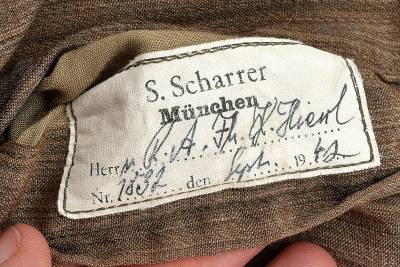 S. Scharrer
München
Herrn R. A. Th. Hierl
Nr. 1532 den Sept. 1942